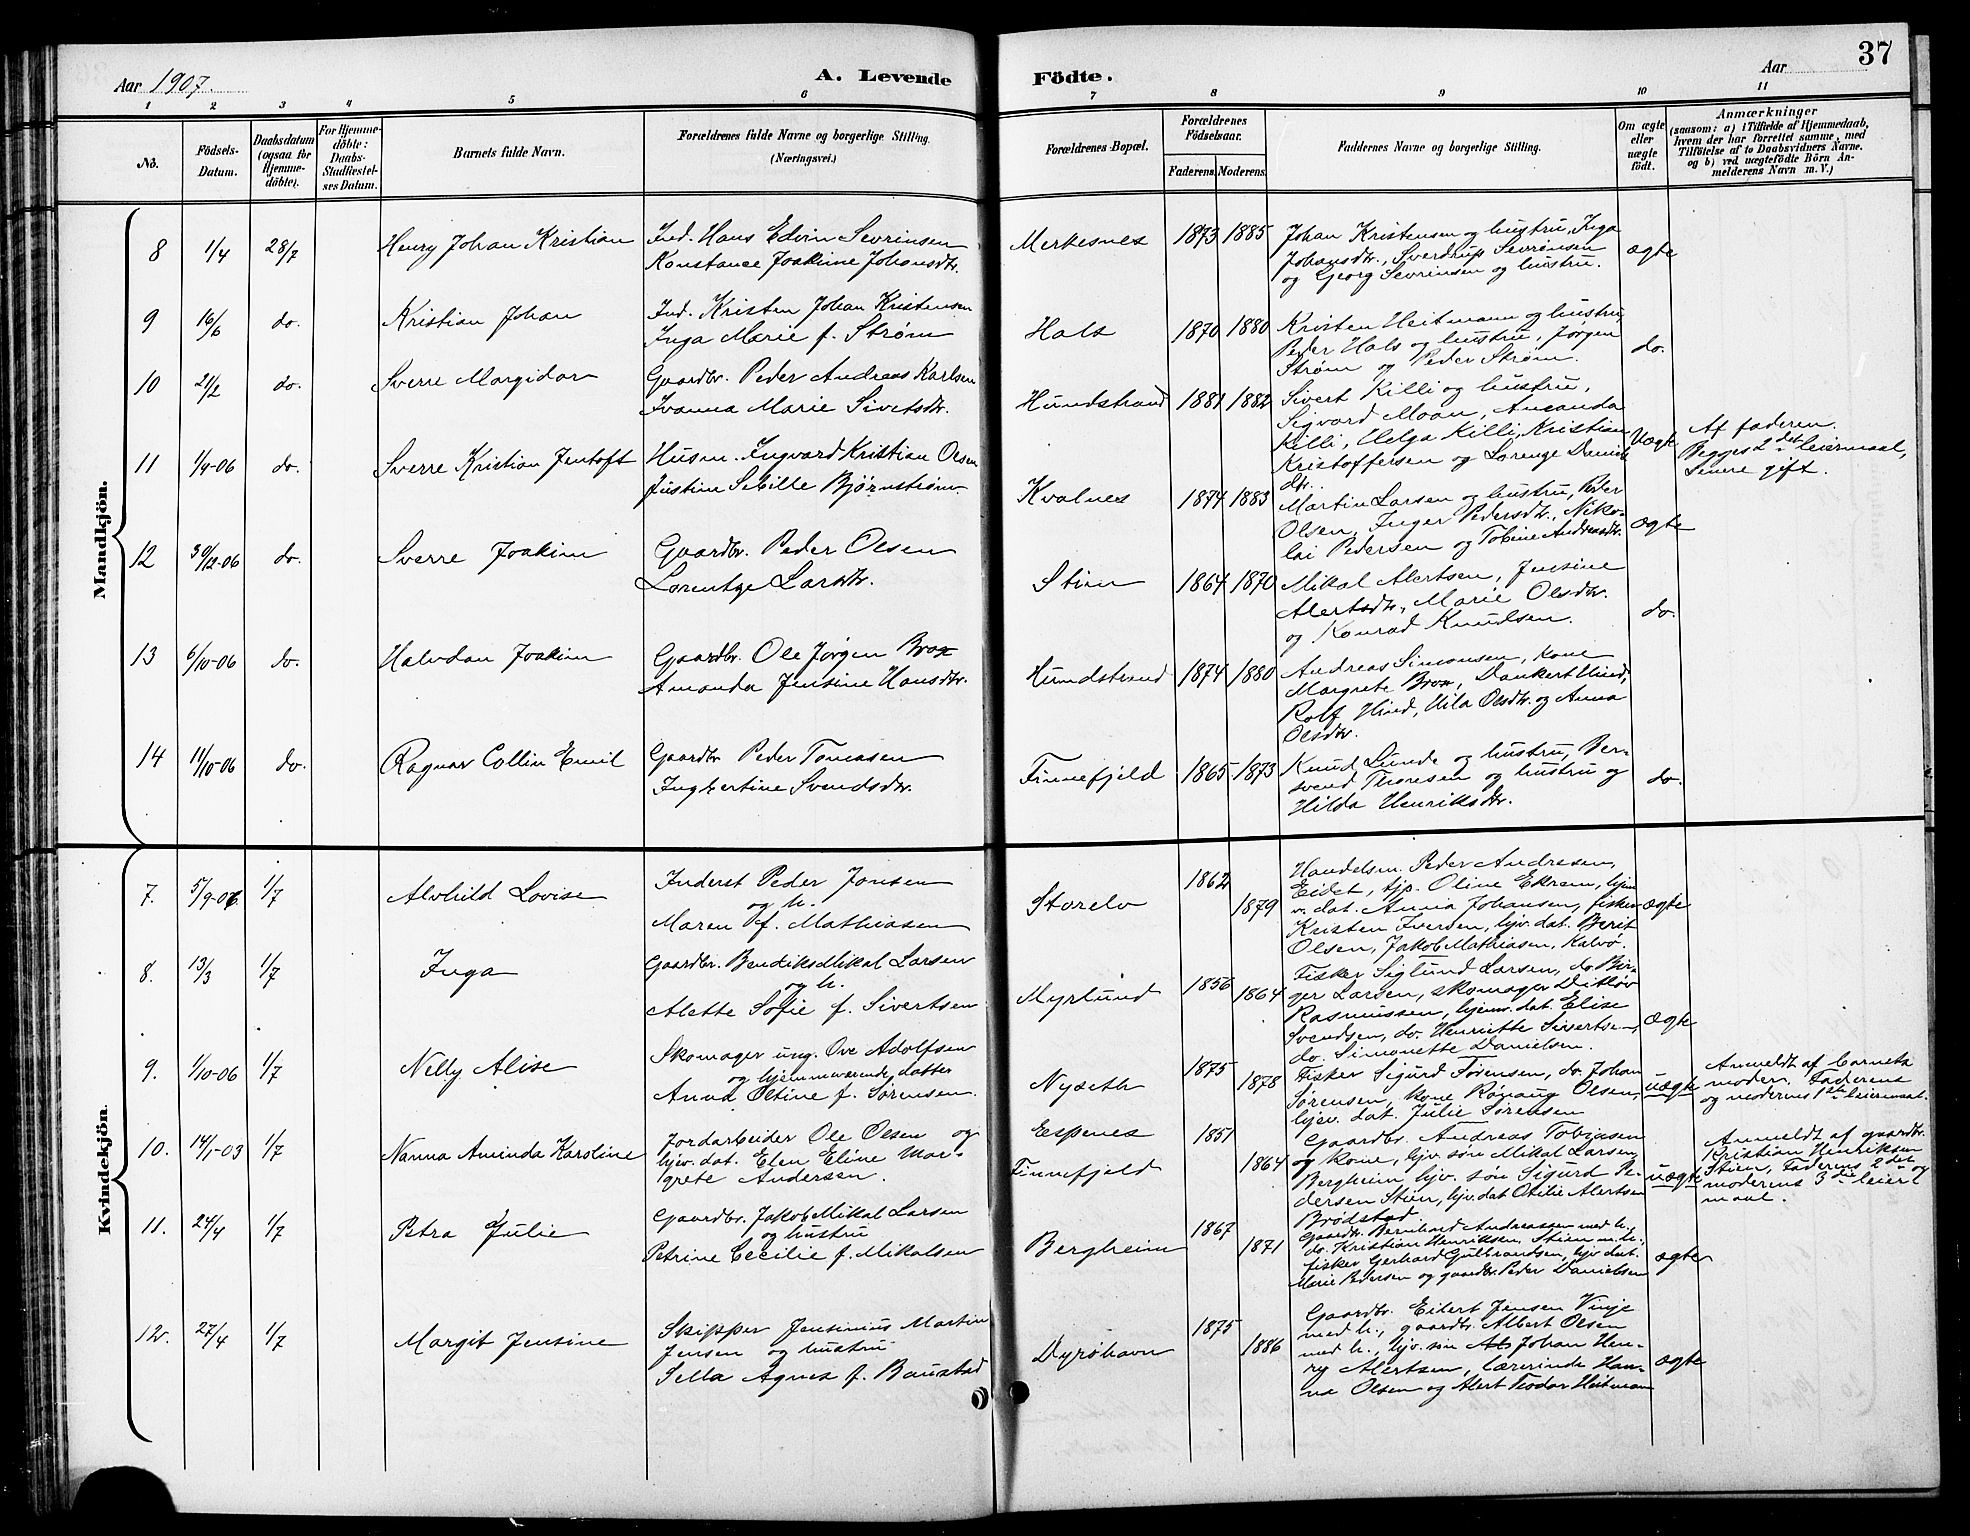 Aar 1907. A. Levende Födte. Aar 37
1 2 3 4 5 6 7 8 9 10 11
No.
Födsels-Datum.
Daabsdatum (ogsaa for Hjemme-döbte).
For Hjemme-döbte: Daabs-Stadfæstel-ses Datum.
Barnets fulde Navn.
Forældrenes fulde Navne og borgerlige Stilling.
(Næringsvei.)
Forældrenes Bopæl.
Forældrenes Födselsaar.
Faderens. Moderens.
Faddernes Navne og borgerlige Stilling.
Om ægte eller uægte födt.
Anmærkninger
(saasom: a) i Tilfælde af Hjemmedaab,
hvem der har forrettet samme, med
Tilföielse af to Daabsvidners Navne.
og b) ved uægtefödte Börn An-
melderens Navn m. V.)
Mandkjön.
8 1/4 28/7 Henry Johan Kristian
Ind. Hans Edvin Sevrinsen
Konstance Joakime Johansdtr.
Merkesnes 1873 1885
Johan Kristensen og hustru, Inga
Johansdtr., Sverdrup Sevrinsen
og Georg Sevrinsen og hustru.
ægte
9 16/6 do. Kristian Johan
Ind. Kristen Johan Kristensen
Inga Marie f. Strøm
Hals 1870 1880
Kristen Heitmann og hustru
Peder Hals og hustru, Jørgen
Strøm og Peder Strøm.
do.
10 21/2 do. Sverre Margidor
Gaardbr. Peder Andreas Karlsen
Ivanna Marie Sivetsdtr.
Hundstrand 1881 1882
Sivert Killi og hustru,
Sigvard Moan, Amanda
Killi, Helga Killi, Kristian
Kristoffersen og Lorenze Daniels
dtr.
Uægte
Af faderen.
Begges 2det leiermaal,
Senere gift.
11 1/9-06 do. Sverre Kristian Jentoft
Husm. Ingvard Kristian Olsen
Justine Sibille Bjørnstrøm.
Kvalnes 1874 1883
Martin Larsen og hustru, Peder
Olsen, Inger Pedersdtr., Niko-
lai Pedersen og Tobine Andreasdtr.
ægte
12 30/12-06 do. Sverre Joakim
Gaardbr. Peder Olsen
Lorentze Larsdtr.
Stien 1864 1870
Mikal Alertsen, Jensine
Alertsdtr., Marie Olsdtr.
og Konrad Knudsen.
do.
13 6/10-06 do. Halvdan Joakim
Gaardbr. Ole Jørgen Brox
Amanda Jensine Hansdtr.
Hundstrand 1874 1880
Andreas Simonsen, kone
Margrete Brox, Dankert Hind,
Rolf Hind, Uila Olsdtr. og Anna
Olsdtr.
14 11/10-06 do. Ragnar Collin Emil
Gaardbr Peder Tomasen
Ingbertine Svendsdtr.
Finnefjeld 1865 1873
Knud Lunde og hustru, Ber-
svend Thoresen og hustru og
Hilda Henriksdtr.
do.
Kvindekjön.
7. 5/9-06 1/7 Alvhild Lovise
Inderst Peder Jonsen
og h.
Maren f. Mathiasen
Storelv 1862 1879
Handelsm. Peder Andresen,
Eidet, tjp. Oline Ekrem, hjem
v. dat. Anna Johansen, fisker
Kristen Iversen, hjv. dat. Berit
Olsen, Jakob Mathiasen, Kalvø.
ægte
8. 13/3 1/7 Inga
Gaardbr. Bendiks Mikal Larsen
og h.
Alette Sofie f. Sivertsen
Myrlund 1856 1864
Fisker Siglund Larsen, do. Bir-
ger Larsen, skomager Ditløv
Rasmussen, hjemv. dat. Elise
Svendsen, do. Henriette Sivertsen,
do. Simonette Danielsen.
ægte
9. 1/10-06 1/7 Nelly Alise
Skomager ung. Ove Adolfsen
og hjemmeværende datter
Anna Oltine f. Sørensen.
Nysæth 1875 1878
Fisker Sigurd Sørensen, do. Johan
Sørensen, kone Rønaug Olsen,
hjv. dat. Julie Sørensen
uægte
Anmeldt af barnets
moder. Faderens
og moderens 1ste leiermaal.
10. 14/1-03 1/7 Nanna Aminda Karoline
Jordarbeider Ole Olsen og
hjv. dat. Elen Eline Mar-
grete Andersen.
Espenes 1851
Finnefjeld 1864
Gaardbr. Andreas Tobiasen
og kone, hjv. søn Mikal Larsen,
Bergheim, hjv. søn Sigurd Pe-
dersen Stien, hjv. dat Otilie Alertsen
Brødstad
uægte
Anmeldt af gaardbr.
Kristian Henriksen
Stien, Faderens 2det og
moderens 3die leier
maal.
11. 24/4 1/7 Petra Julie
Gaardbr. Jakob Mikal Larsen
og hustru
Petrine Cecilie f. Mikalsen
Bergheim 1867 1871
Gaardbr. Bernhard Andreassen med h.,
do. Kristian Henriksen, Stien m. h.,
fisker Gerhard Gulbrandsen, hjv. dat.
Marie Pedersen og gaardbr. Peder Danielsen
ægte
12. 27/4 1/7 Margit Jensine
Skipper Jensinius Martin
Jensen og hustru
Sella Agnes f. Baustad
Dyrøhavn 1875 1886
Gaardbr. Eidert Jensen Vinje
med h., gaardbr. Albert Olsen
med h., hjv. søn Johan Hen-
ry Alertsen, lærerinde Han-
na Olsen og Alert Teodor Heitman
ægte